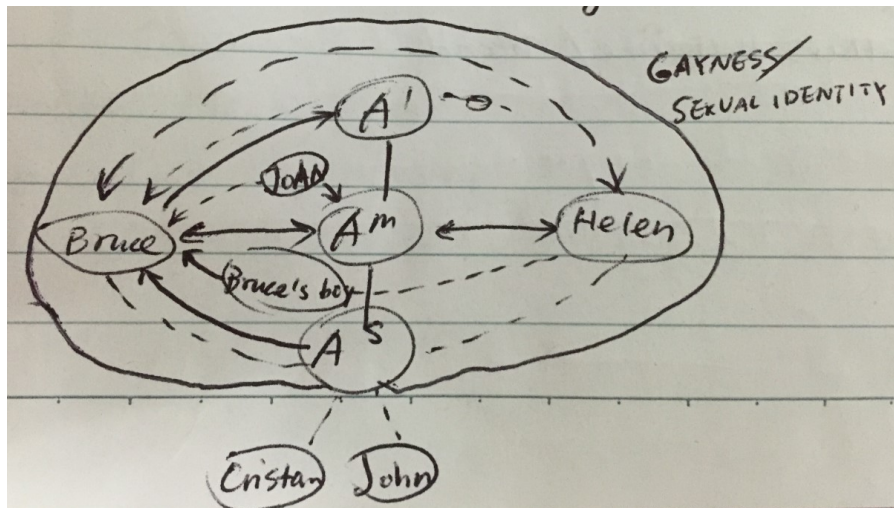 GAYNESS/
SEXUAL IDENTITY
A'
JOAN
Bruce
Am
Helen
Bruce's boy
AS
Cristan
John